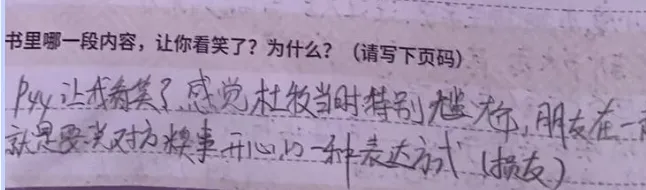 书里哪一段内容，让你看笑了？为什么？（请写下页码）
P44 让我看笑了 感觉杜牧当时特别尴尬，朋友在一
就是要对方糗事开心的一种表达方式（损友）